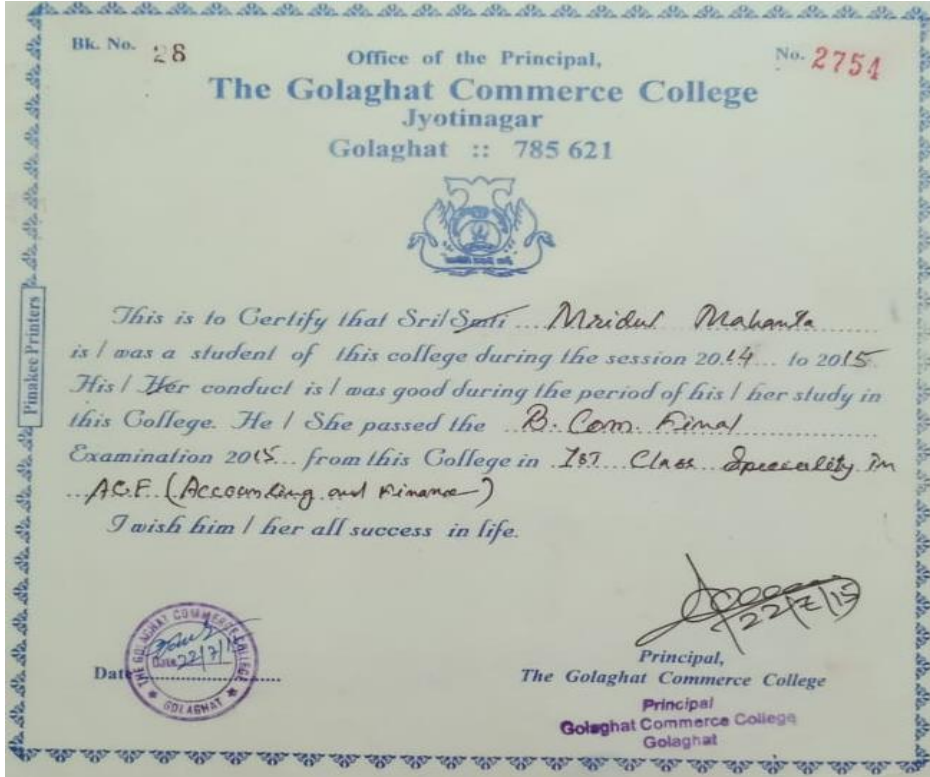 Bk. No. 28
No. 2754
Office of the Principal,
The Golaghat Commerce College
Jyotinagar
Golaghat :: 785 621
Pinakee Printers
This is to Certify that Sri/Smti ... Mridul Mahanta
is / was a student of this college during the session 2014 ... to 2015
His / Her conduct is / was good during the period of his / her study in
this College. He / She passed the .. B. Com. Final
Examination 2015 ... from this College in . 1ST Class Speciality in
... ACF (Accounting and Finance)
I wish him / her all success in life.
22/7/15
THE GOLAGHAT COMMERCE COLLEGE
GOLAGHAT
Date 22/7/15
Principal,
The Golaghat Commerce College
Principal
Golaghat Commerce College
Golaghat